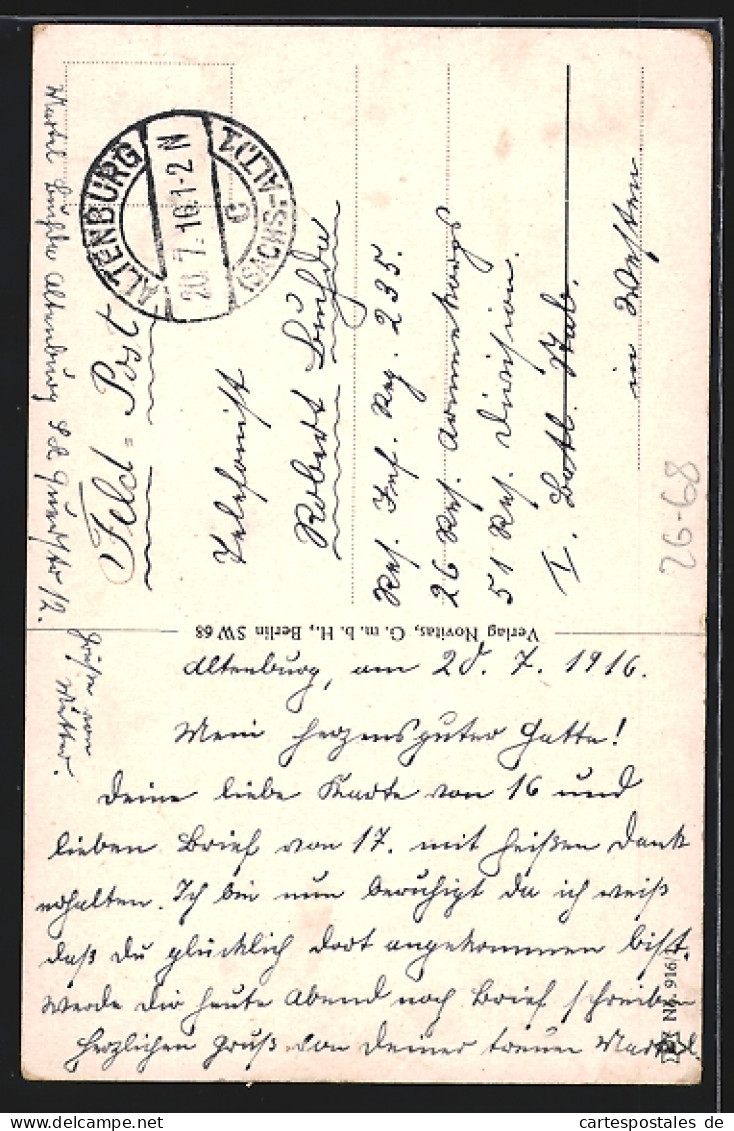 Feld-Post
ALTENBURG
20.7.16.1-2 N
(SACHS.-ALT.) 1
c
Telefonist
Robert
Res. Inf. Reg. 235.
26 Res. Armeekorps
51 Res. Division.
I. Batl. Stab.
im Westen
26-68
Altenburg
12.
Grüße von
Mutter.
Verlag Novitas, G. m. b. H., Berlin SW 68
Altenburg, am 20. 7. 1916.
Mein herzensguter Gatte!
Deine liebe Karte von 16 und
lieben Brief von 17. mit heißen Dank
erhalten. Ich bin nun beruhigt da ich weiß
daß Du glücklich dort angekommen bist.
Werde dir heute Abend noch Brief schreiben
Herzlichen Gruß von Deiner treuen
Nr. 916
cartespostales de